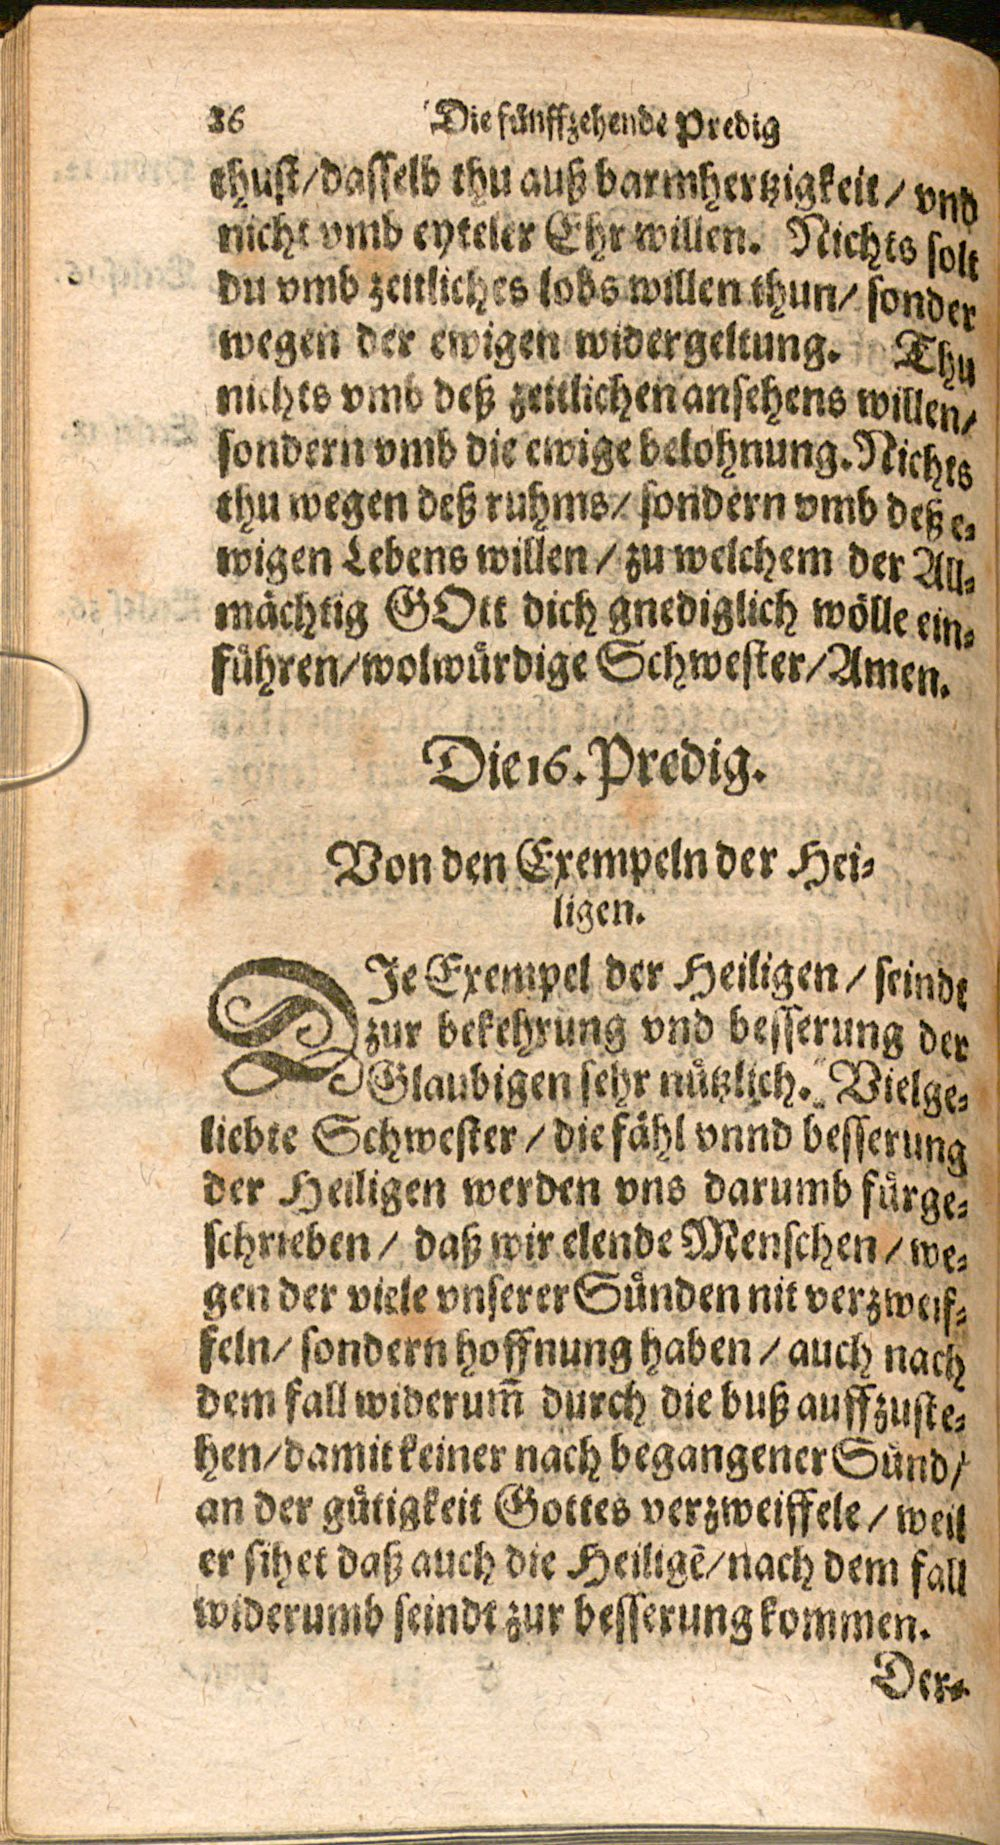 86 Die fünffzehende Predig
thust/dasselb thu auß barmhertzigkeit/ vnd
nicht vmb eyteler Ehr willen. Nichts solt
du vmb zeitliches lobs willen thun/ sonder
wegen der ewigen widergeltung. Thu
nichts vmb deß zeitlichen ansehens willen/
sondern vmb die ewige belohnung. Nichts
thu wegen deß ruhms/ sondern vmb deß e-
wigen Lebens willen/ zu welchem der All-
mächtig GOtt dich gnediglich wölle ein-
führen/wolwürdige Schwester/Amen.
Die 16. Predig.
Von den Exempeln der Hei-
ligen.
DIe Exempel der Heiligen/ seindt
zur bekehrung vnd besserung der
Glaubigen sehr nützlich. Vielge-
liebte Schwester/ die fähl vnnd besserung
der Heiligen werden vns darumb fürge-
schrieben/ daß wir elende Menschen/ we-
gen der viele vnserer Sünden nit verzweif-
feln/ sondern hoffnung haben/ auch nach
dem fall widerum̃ durch die buß auffzuste-
hen/damit keiner nach begangener Sünd/
an der gütigkeit Gottes verzweiffele/ weil
er sihet daß auch die Heiligẽ/nach dem fall
widerumb seindt zur besserung kommen.
Der-